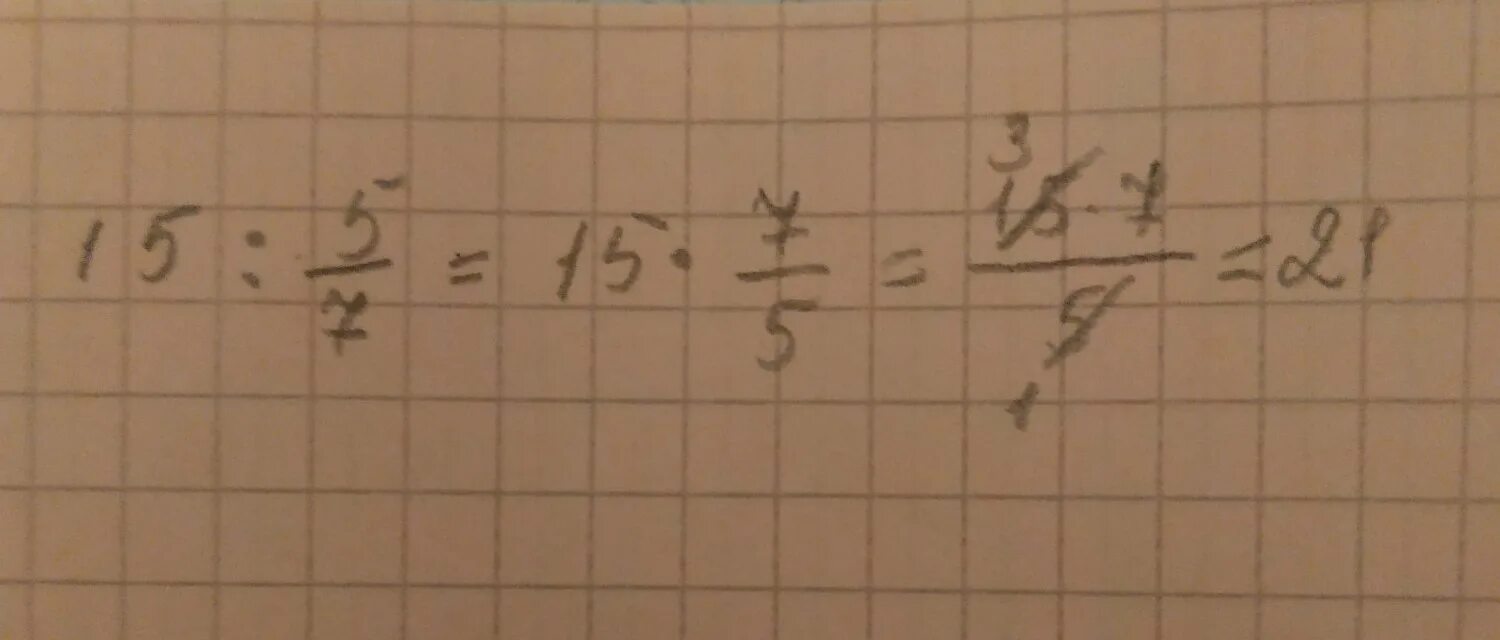 15 : 5/7 = 15 · 7/5 = 3 15 · 7 / 5 1 = 21